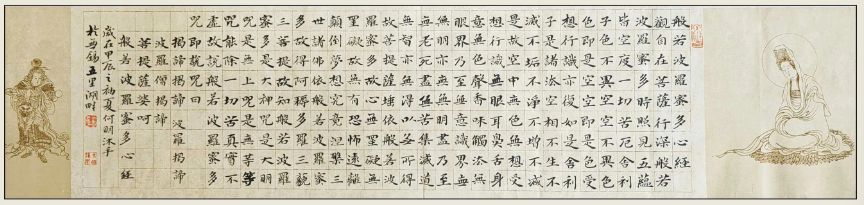 般若波羅蜜多心經
觀自在菩薩行深般若
波羅蜜多時照見五蘊
皆空度一切苦厄舍利
子色不異空空不異色
色即是空空即是色受
想行識亦復如是舍利
子是諸法空相不生不
滅不垢不淨不增不減
是故空中無色無想受
想行識無眼耳鼻舌身
意無色聲香味觸法無
眼界乃至無意識界無
無明亦無無明盡乃至
無老死盡無苦集滅道
無智亦無得以無所得
故菩提薩埵依般若波
羅蜜多故心無罣礙無
罣礙故無有恐怖遠離
顛倒夢想究竟涅槃三
世諸佛依般若波羅蜜
多故得阿耨多羅三藐
三菩提故知般若波羅
蜜多是大神咒是大明
咒是無上咒是無等等
咒能除一切苦真實不
虛故說般若波羅蜜多
咒即說咒曰
揭諦揭諦 波羅揭諦
波羅僧揭諦
菩提薩婆訶
般若波羅蜜多心經
歲在甲辰之初夏何明沐手
於無錫五里湖畔